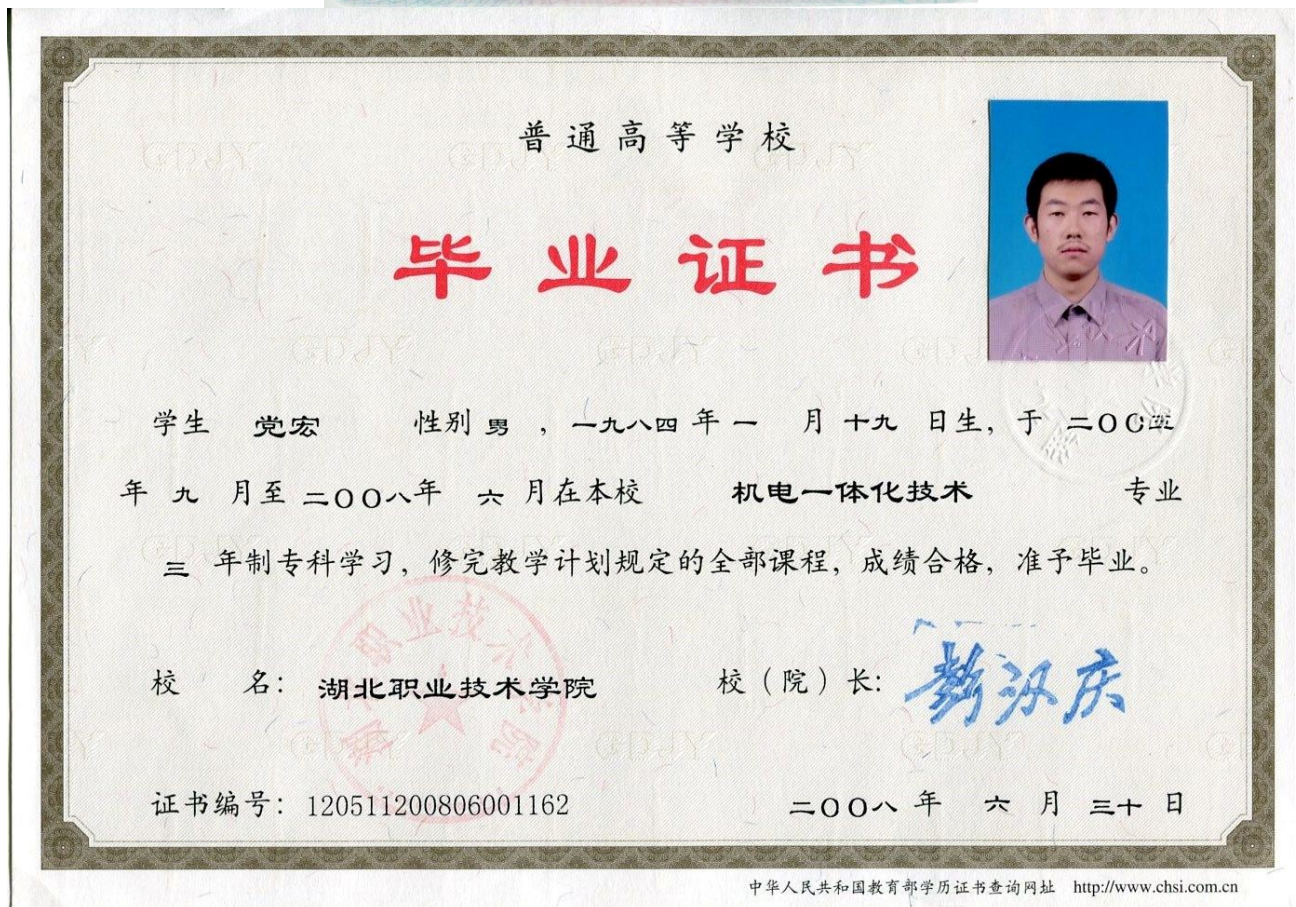 普通高等学校
毕业证书
学生 党宏 性别 男 ，一九八四 年 一 月 十九 日生，于 二〇〇五
年 九 月至 二〇〇八年 六 月在本校 机电一体化技术 专业
三 年制专科学习，修完教学计划规定的全部课程，成绩合格，准予毕业。
校 名：湖北职业技术学院 校（院）长：彭汉庆
证书编号：120511200806001162 二〇〇八 年 六 月 三十 日
中华人民共和国教育部学历证书查询网址 http://www.chsi.com.cn